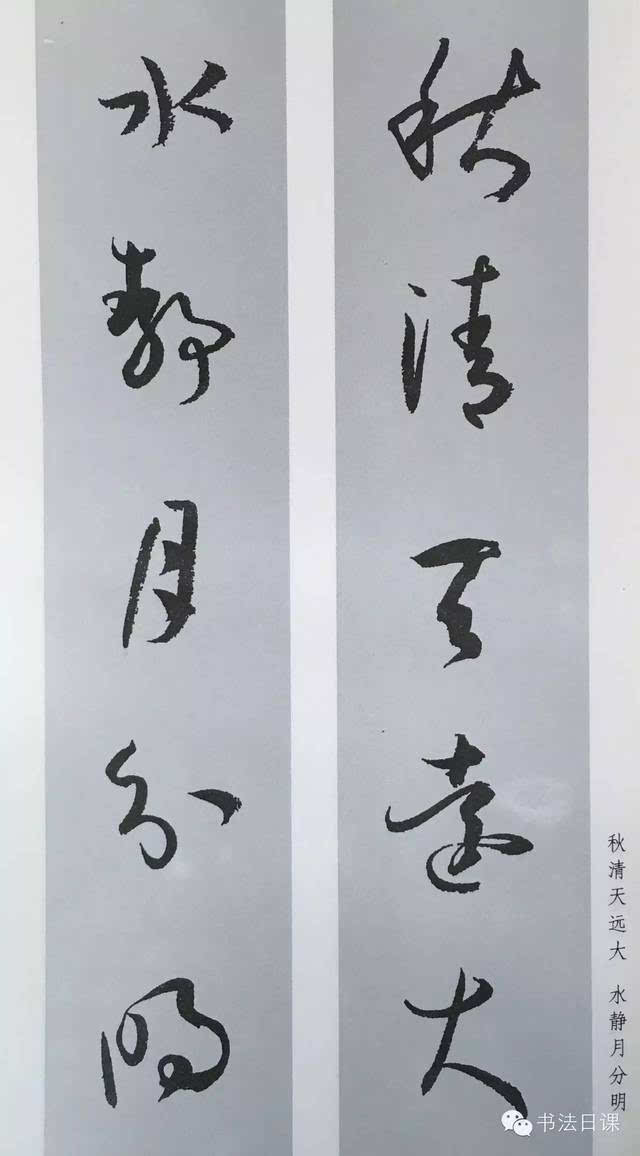 秋清天遠大
水静月分明
秋清天远大 水静月分明
书法日课